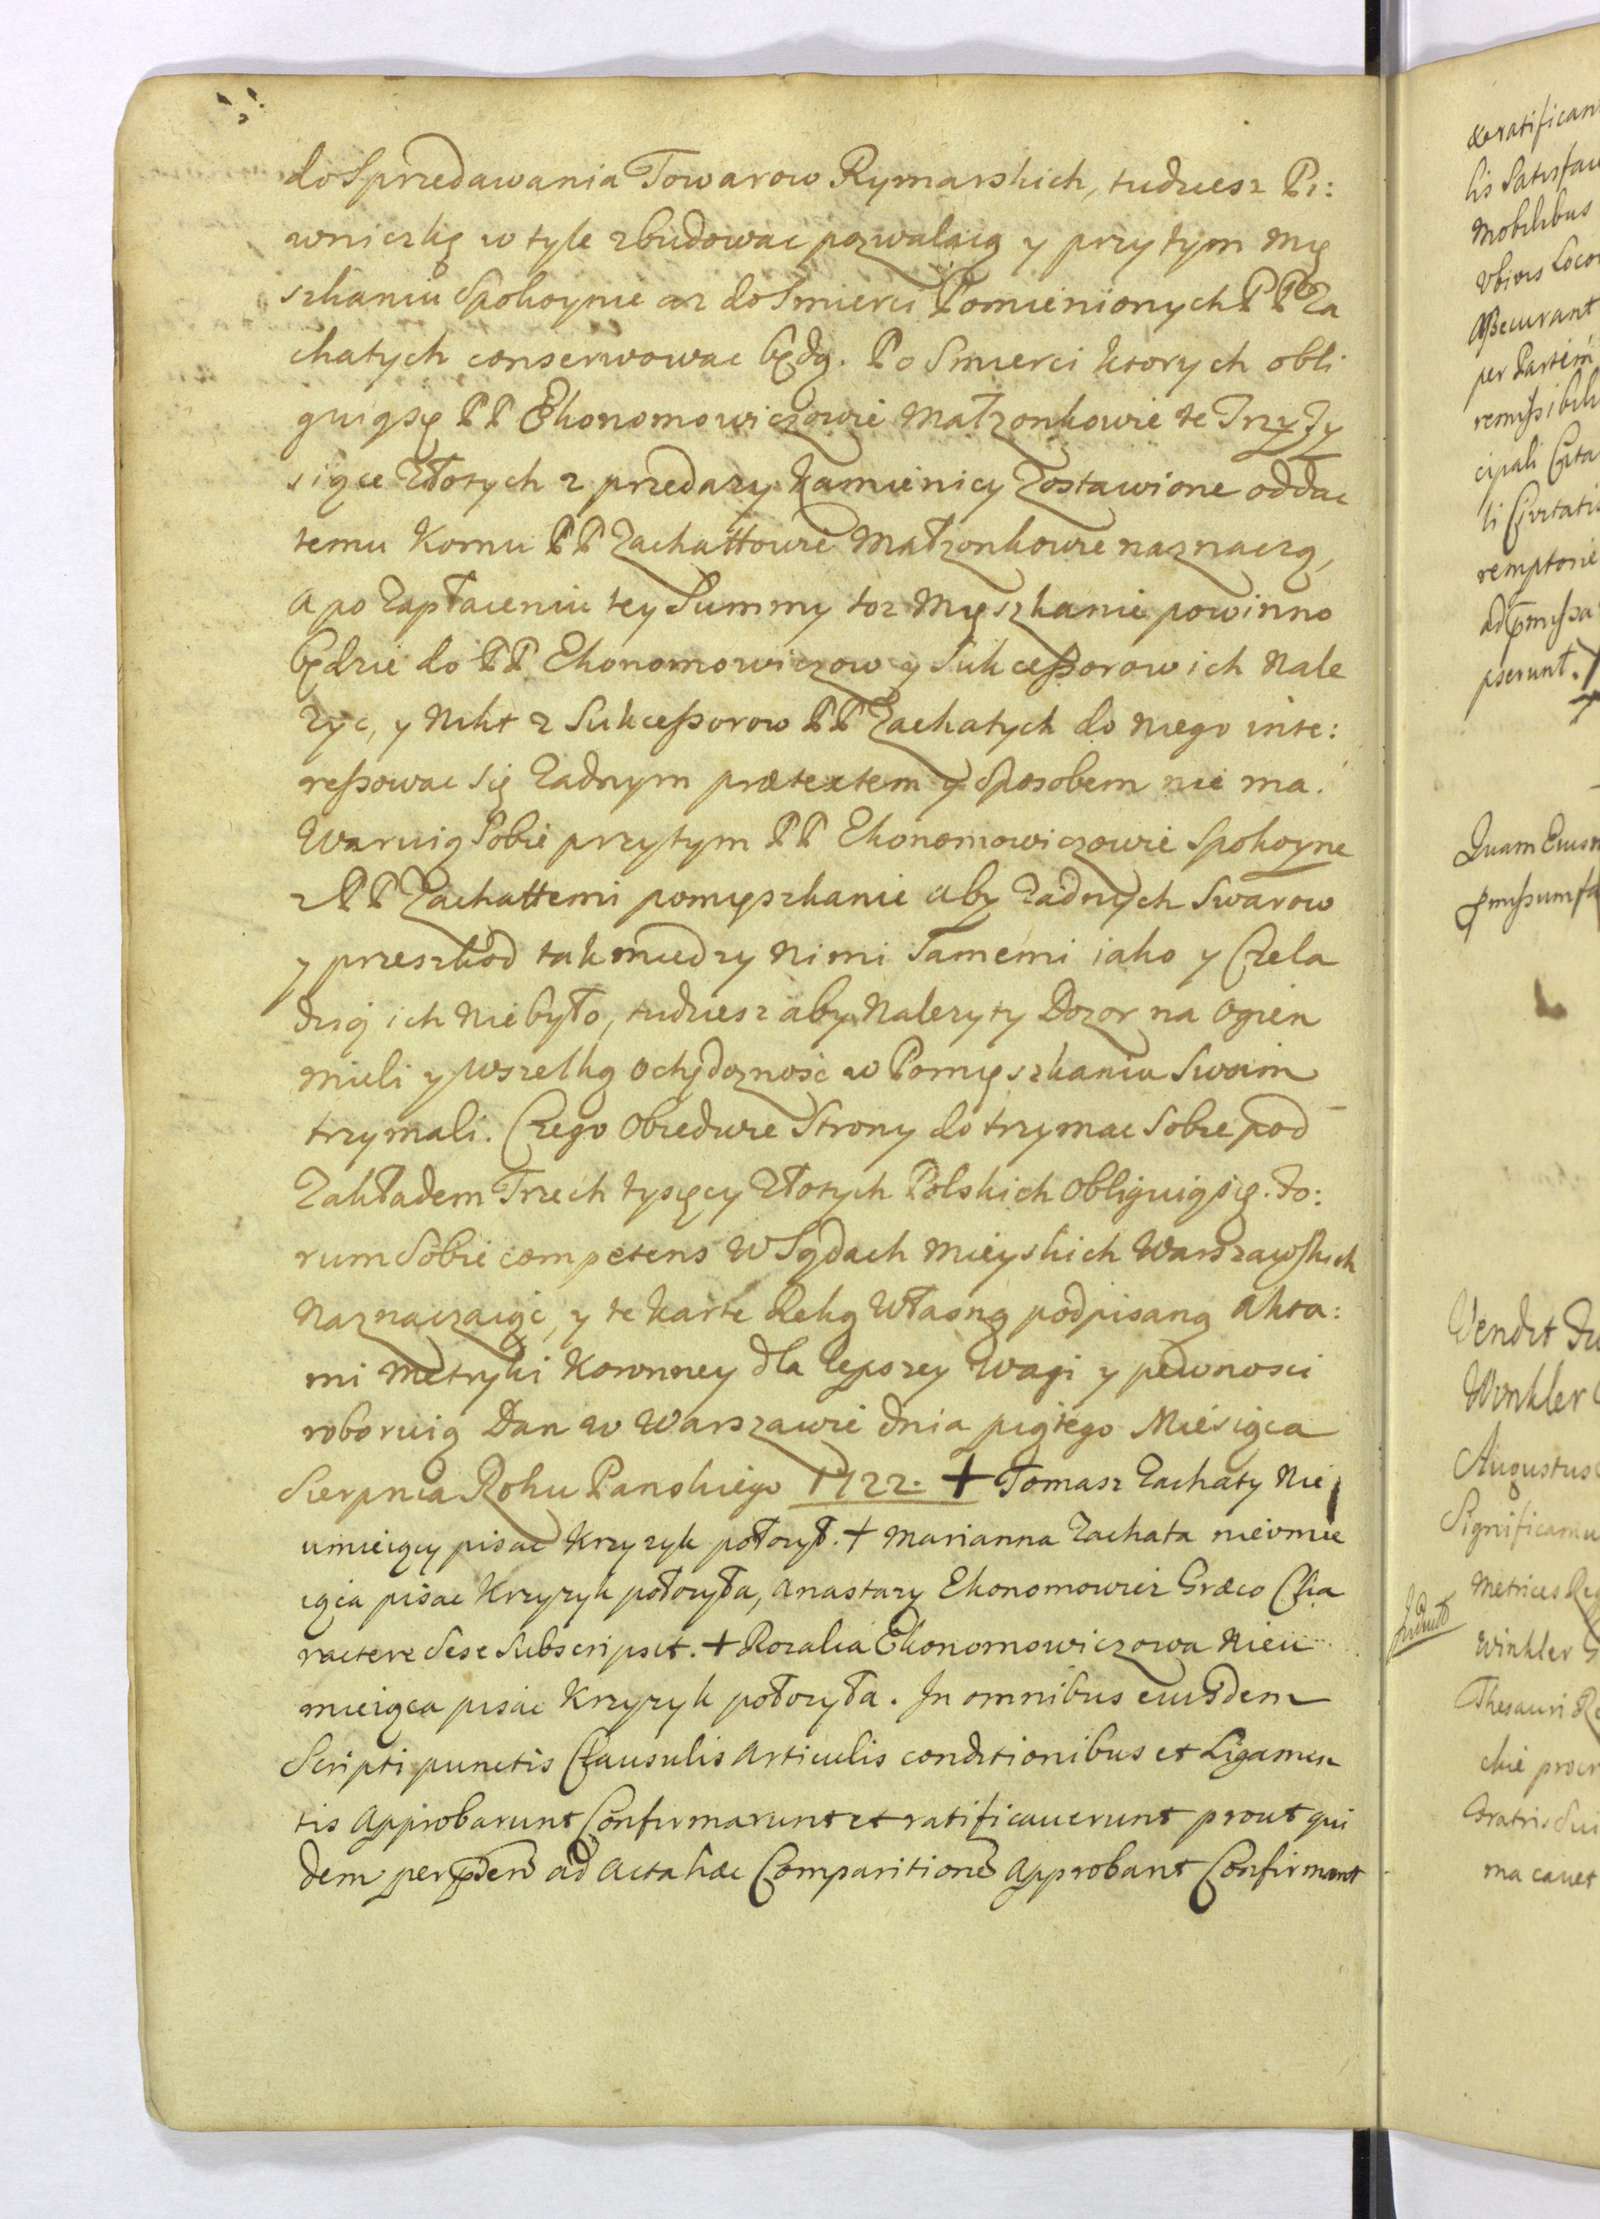 do Sprzedawania Towarow Rymarskich, tudziesz Pi:
wniczkę w tyle zbudowac pozwalaią y przy tym Mię
szkaniu Spokoynie az do Smierci Pomienionych PP Za
chatych conserwowac będą. Po Smierci ktorych obli
guiąsię PP Ekonomowiczowie Małzonkowie te Trzy Ty
siące Złotych z przedazy Kamienicy Zostawione oddac
temu Komu PP Zachattowie Małzonkowie naznaczą,
A po Zapłaceniu tey Summy toz Mięszkanie powinno
będzie do PP Ekonomowiczow y Sukceßorow ich Nale
zyc, y Nikt z Sukceßorow PP Zachatych do niego inte:
reßowac się Zadnym prætextem y Sposobem nie ma.
Waruią Sobie przytym PP Ekonomowiczowie Spokoyne
z PP Zachattemi pomyszkanie aby Zadnych Swarow
y przeszkod tak miedzy Nimi Samemi iako y Czela
dzią ich Nie było, tudziesz aby Nalezyty Dozor na Ogien
mieli y wszelką Ochędoznosc w Pomięszkaniu Swoim
trzymali. Czego Obiedwie Strony dotrzymac Sobie pod
Zakładem Trzech tysięcy Złotych Polskich Obliguią się. Fo:
rum Sobie competens W Sądach Mieyskich Warszawskich
Naznaczaiąc, y te karte Ręką Własną podpisaną Akta:
mi Metryki Koronney dla lepszey Wagi y pewnosci
roboruią Dan w Warszawie dnia piątego Miesiąca
Sierpnia Roku Panskiego 1722. + Tomasz Zachaty Nie
umieiący pisac Krzyzyk połozył. + Marianna Zachata nieumie
iąca pisac Krzyzyk połozyła, Anastazy Ekonomowicz Græco Cha
ractere Sese Subscripsit. + Rozalia Ekonomowiczowa Nieu
mieiąca pisac Krzyzyk połozyła. In omnibus eiusdem
Scripti punctis Clausulis Articulis conditionibus et Ligamen
tis Approbarunt Confirmarunt et ratificauerunt prout qui
dem per pñtem ad Acta hæc Comparitionẽ Approbant Confirmant
&ratifican
Mobilibus
Aßecurant
per Partem
cipali
pserunt.
Quam
Vendit
Winkler
Augustus
Significamus
Metrices Reg
Winkler
Thesauri
ma cauet